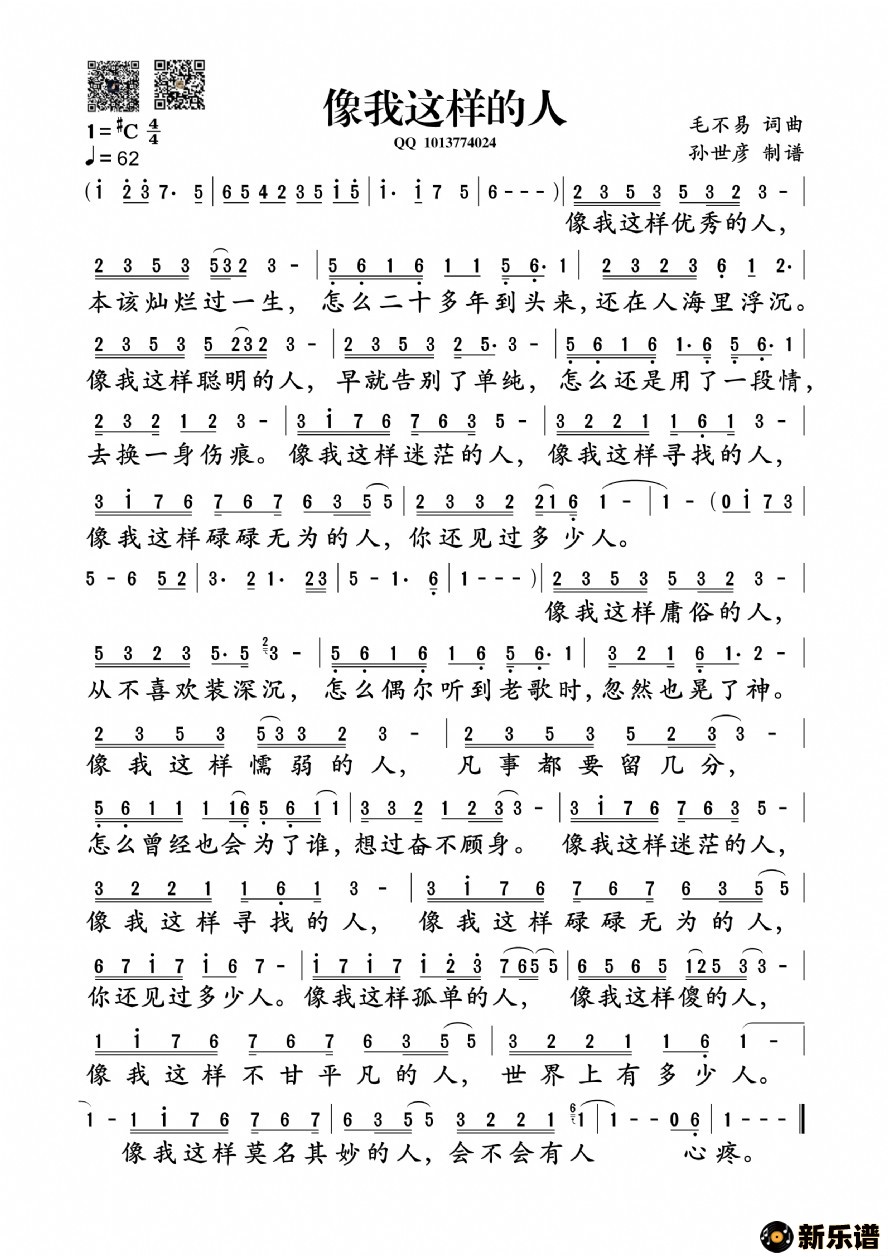 像我这样的人
QQ 1013774024
1=#C 4/4
♩=62
毛不易 词曲
孙世彦 制谱
(i 2 3 7· 5 | 6 5 4 2 3 5 i 5 | i· i 7 5 | 6 - - - ) | 2 3 5 3 5 3 2 3 - |
像我这样优秀的人，
2 3 5 3 5 3 2 3 - | 5 6 1 6 1 1 5 6· 1 | 2 3 2 3 6 1 2· |
本该灿烂过一生，怎么二十多年到头来，还在人海里浮沉。
2 3 5 3 5 2 3 2 3 - | 2 3 5 3 2 5· 3 - | 5 6 1 6 1· 6 5 6· 1 |
像我这样聪明的人，早就告别了单纯，怎么还是用了一段情，
2 3 2 1 2 3 - | 3 i 7 6 7 6 3 5 - | 3 2 2 1 1 6 1 3 - |
去换一身伤痕。像我这样迷茫的人，像我这样寻找的人，
3 i 7 6 7 6 7 6 3 5 5 | 2 3 3 2 2 1 6 1 - | 1 - (0 i 7 3 |
像我这样碌碌无为的人，你还见过多少人。
5 - 6 5 2 | 3· 2 1· 2 3 | 5 - 1· 6 | 1 - - - ) | 2 3 5 3 5 3 2 3 - |
像我这样庸俗的人，
5 3 2 3 5· 5 2 3 - | 5 6 1 6 1 6 5 6· 1 | 3 2 1 6 1· 2 - |
从不喜欢装深沉，怎么偶尔听到老歌时，忽然也晃了神。
2 3 5 3 5 3 3 2 3 - | 2 3 5 3 5 2 3 3 - |
像我这样懦弱的人，凡事都要留几分，
5 6 1 1 1 1 6 5 6 1 1 | 3 3 2 1 2 3 3 - | 3 i 7 6 7 6 3 5 - |
怎么曾经也会为了谁，想过奋不顾身。像我这样迷茫的人，
3 2 2 1 1 6 1 3 - | 3 i 7 6 7 6 7 6 3 5 5 |
像我这样寻找的人，像我这样碌碌无为的人，
6 7 i 7 i 6 7 - | i 7 i 7 i 2 3 7 6 5 5 | 6 5 6 5 1 2 5 3 3 - |
你还见过多少人。像我这样孤单的人，像我这样傻的人，
1 i 7 6 7 6 7 6 3 5 5 | 3 2 2 1 1 6 1 - |
像我这样不甘平凡的人，世界上有多少人。
1 - 1 i 7 6 7 6 7 | 6 3 5 5 3 2 2 1 | 6 1 1 - - 0 6 | 1 - - - ‖
像我这样莫名其妙的人，会不会有人心疼。
新乐谱